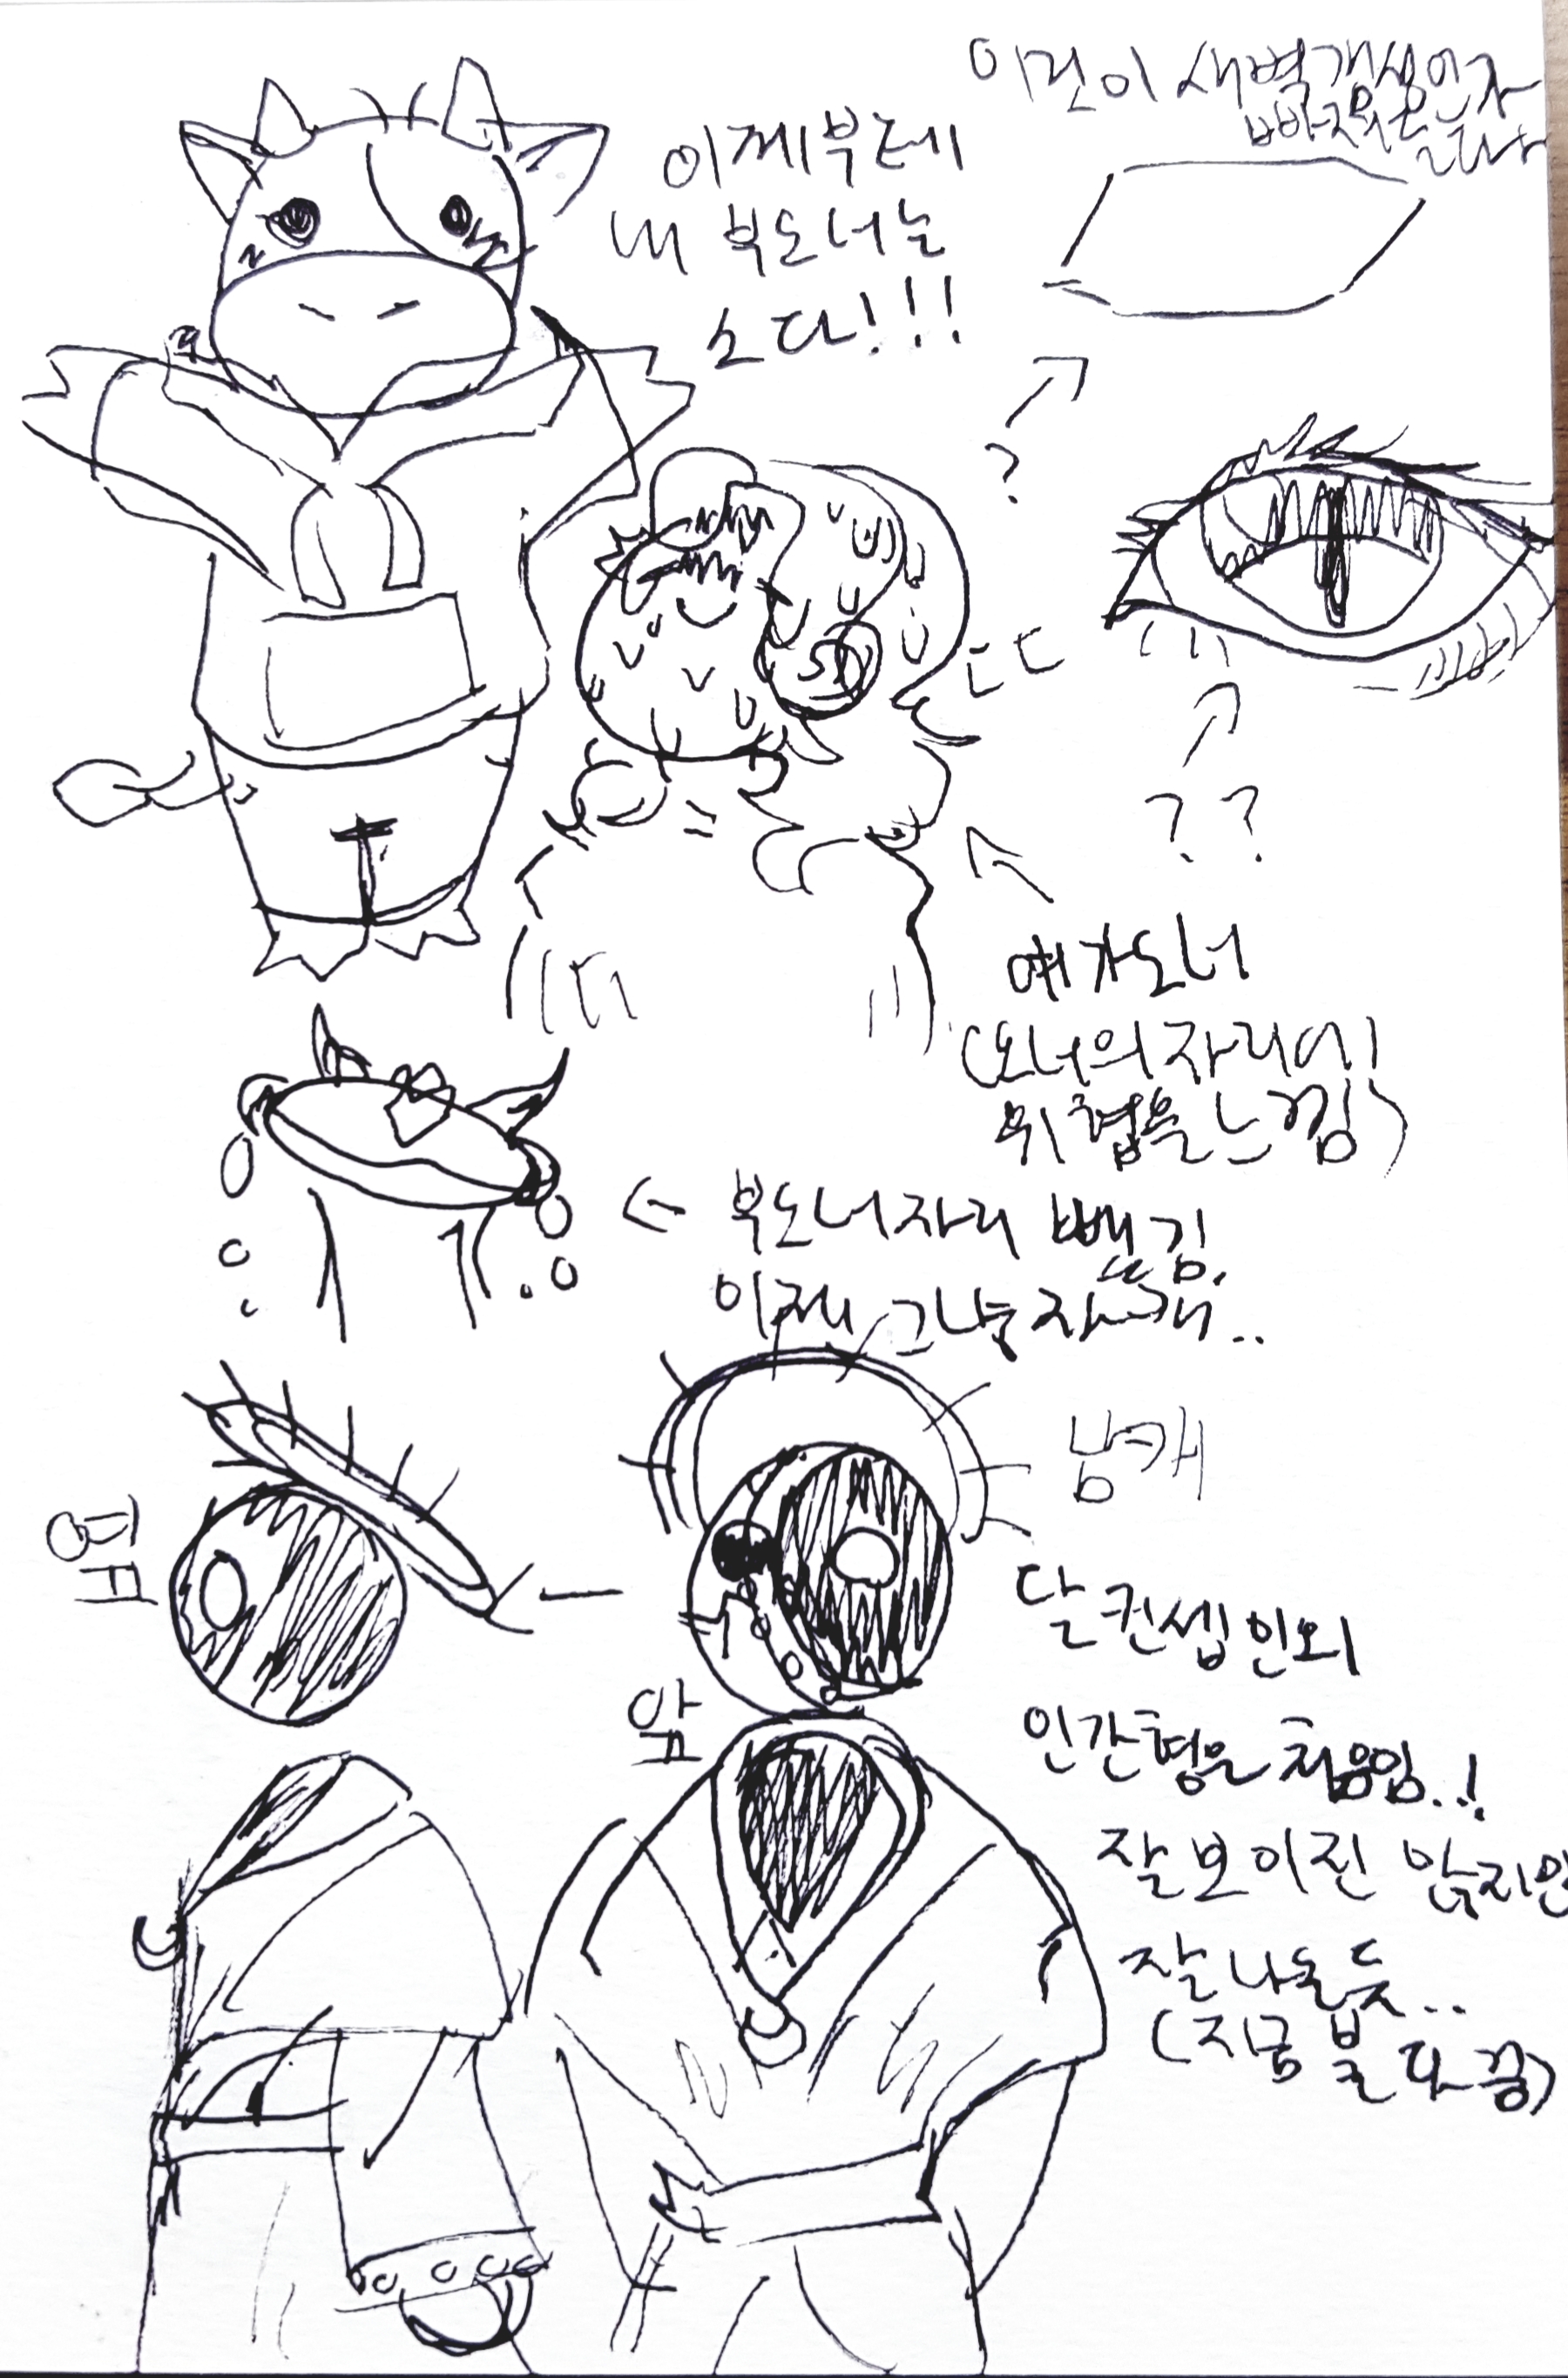 이제부터
내 부오너는
소다!!!
?
? ?
얘가오너
(오너의자리에
위협을느낌)
← 부오너자리 뺏김.
이제 그냥자캐..
남캐
옆
앞
달컨셉인외
인간형은처음임..!
잘보이진 않지만
잘나온듯..
(지금 불 다 끔)